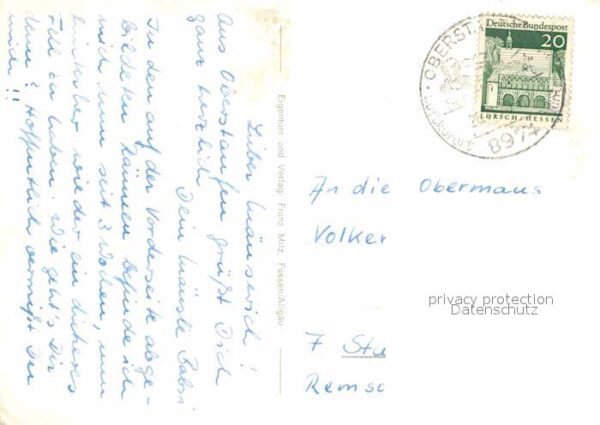 Lieber Mäuserich!
Aus Oberstaufen grüßt Dich
ganz herzlich Dein Mäusle Gabi
In den auf der Vorderseite abge-
bildeten Räumen befinde ich
mich nun seit 3 Wochen, um
hinterher wieder ein dickeres
Fell zu haben! Wie geht's Dir
denn? Hoffentlich vermißt Du
mich!!
Eigentum und Verlag: Franz Milz, Füssen/Allgäu
OBERST
897
Deutsche Bundespost
20
LORSCH/HESSEN
An die Obermaus
Volker
7 Stu
Remsc
privacy protection
Datenschutz